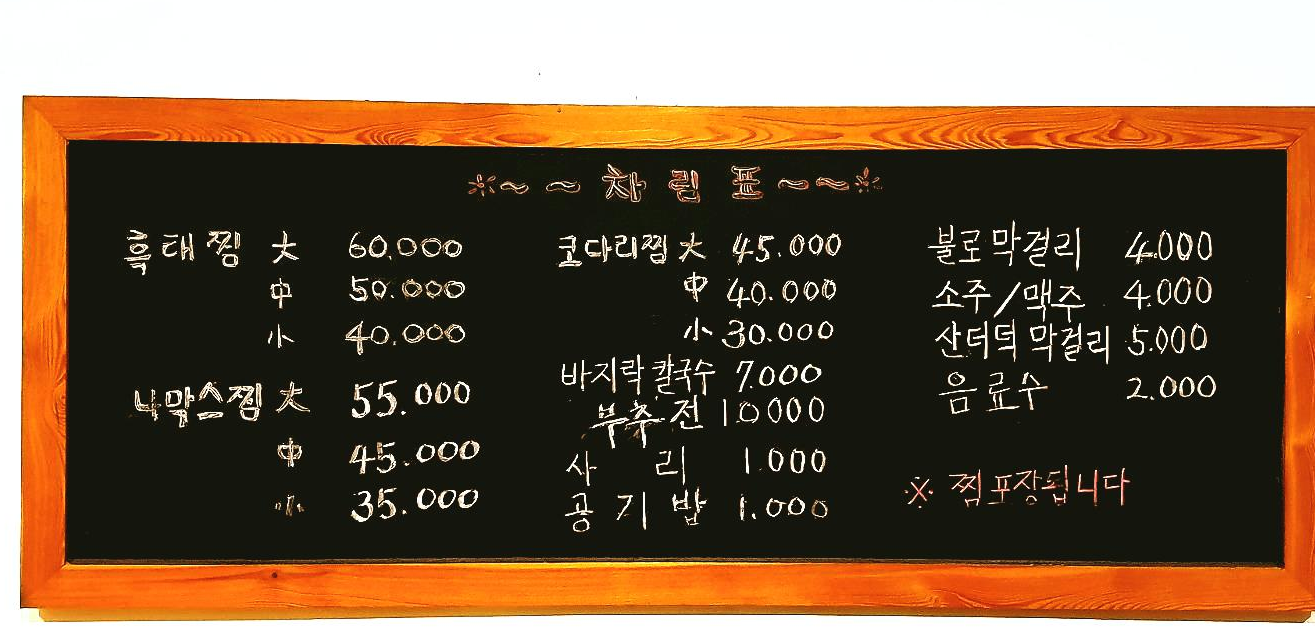 ※~~차림표~~※
흑태찜 大 60.000
中 50.000
小 40.000
나막스찜 大 55.000
中 45.000
小 35.000
코다리찜 大 45.000
中 40.000
小 30.000
바지락칼국수 7.000
부추전 10000
사리 1.000
공기밥 1.000
불로막걸리 4.000
소주/맥주 4.000
산더덕 막걸리 5.000
음료수 2.000
※ 찜포장됩니다